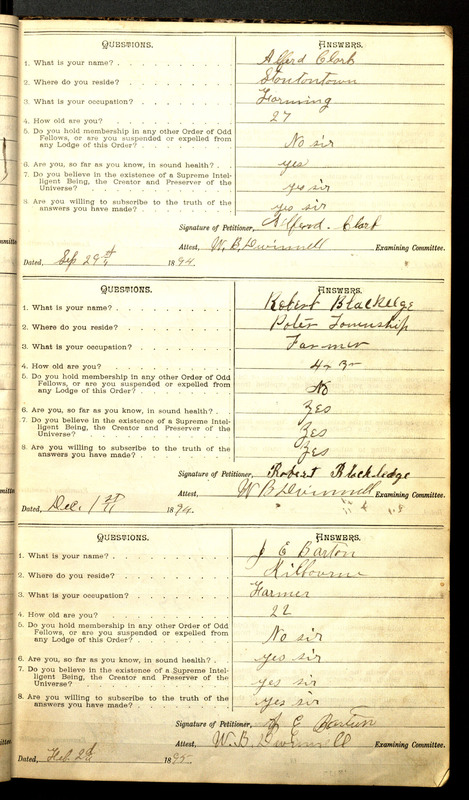 QUESTIONS. ANSWERS.
1. What is your name? Alferd Clark
2. Where do you reside? Stoutontown
3. What is your occupation? Farming
4. How old are you? 27
5. Do you hold membership in any other Order of Odd
Fellows, or are you suspended or expelled from
any Lodge of this Order? No sir
6. Are you, so far as you know, in sound health? yes
7. Do you believe in the existence of a Supreme Intel-
ligent Being, the Creator and Preserver of the
Universe? yes sir
8. Are you willing to subscribe to the truth of the
answers you have made? yes sir
Signature of Petitioner, Alferd. Clark
Attest, W. B. Dwinnell Examining Committee.
Dated, Sep 29 1894.
QUESTIONS. ANSWERS.
1. What is your name? Robert
2. Where do you reside? Township
3. What is your occupation? Farmer
4. How old are you?
5. Do you hold membership in any other Order of Odd
Fellows, or are you suspended or expelled from
any Lodge of this Order? No
6. Are you, so far as you know, in sound health? Yes
7. Do you believe in the existence of a Supreme Intel-
ligent Being, the Creator and Preserver of the
Universe? Yes
8. Are you willing to subscribe to the truth of the
answers you have made? Yes
Signature of Petitioner, Robert Blackledge
Attest, W B Dwinnell Examining Committee.
Dated, Dec. 1st 1894.
QUESTIONS. ANSWERS.
1. What is your name? J E Barton
2. Where do you reside? Kilbourne
3. What is your occupation? Farmer
4. How old are you? 22
5. Do you hold membership in any other Order of Odd
Fellows, or are you suspended or expelled from
any Lodge of this Order? No sir
6. Are you, so far as you know, in sound health? yes sir
7. Do you believe in the existence of a Supreme Intel-
ligent Being, the Creator and Preserver of the
Universe? yes sir
8. Are you willing to subscribe to the truth of the
answers you have made? yes sir
Signature of Petitioner, J E Barton
Attest, W. B. Dwinnell Examining Committee.
Dated, Feb. 2d 1895.